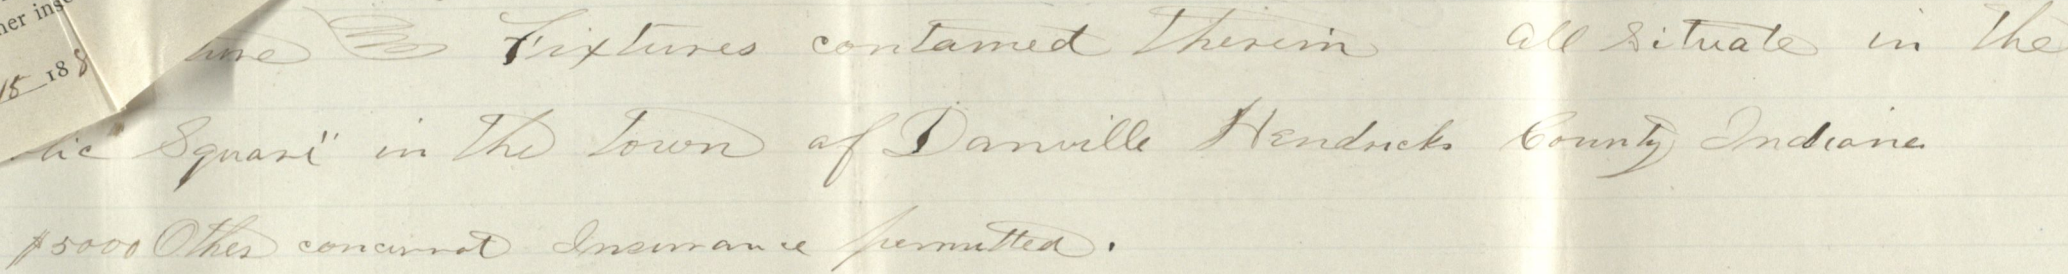 her
15 188
Fixtures contained therein all situate in the
lic Square" in the town of Danville Hendricks County Indiana
$5000 Other concurrent Insurance permitted.